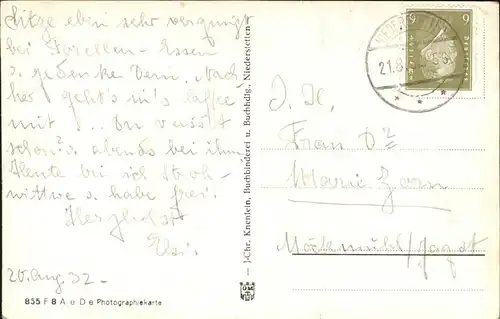 Sitze eben sehr vergnügt
bei Forellen-Essen
u. gedenke Dein. Nach
her geht's in's Caffee
mit ... Du weisst
schon's abends bei ihm.
Heute bei ich Stroh-
wittwe u. habe frei.
Herzlichst
20. Aug. 32 –
855 F 8 A e D e Photographiekarte
J. Chr. Knenlein, Buchbinderei u. Buchhdlg., Niederstetten
9 9
21.8.
Frau Dr
Marie Zorn
Möckmühl/Jagst